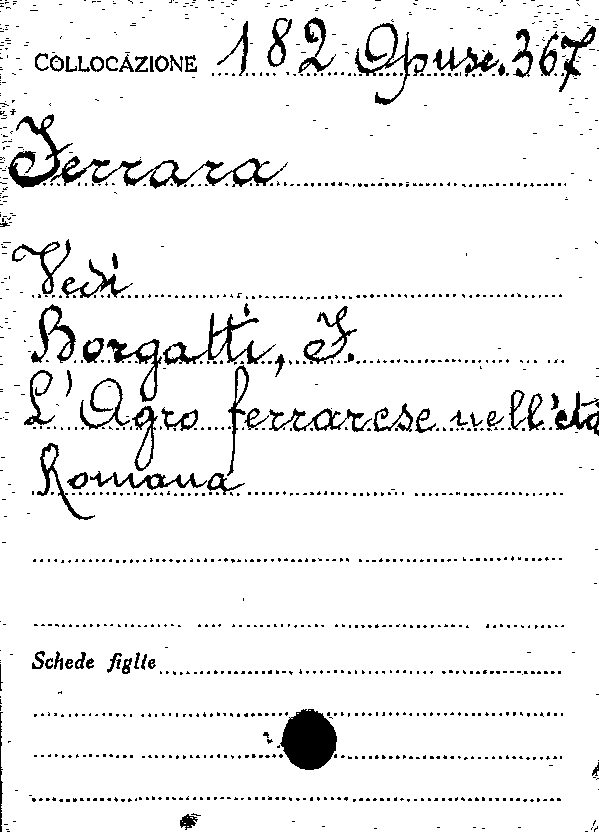 COLLOCAZIONE 182 Opusc. 367
Ferrara
Vedi
Borgatti, F.
L'Agro ferrarese nell'età
Romana
Schede figlie